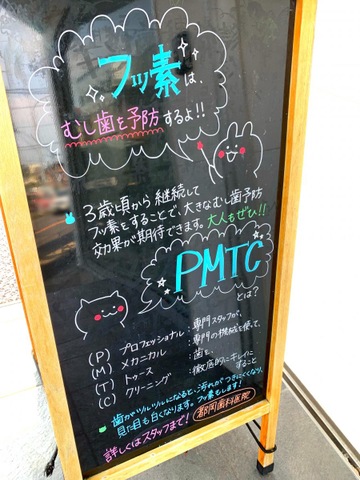 フッ素は、
むし歯を予防するよ!!
3歳頃から継続して
フッ素をすることで、大きなむし歯予防
効果が期待できます。大人もぜひ!!
PMTC
とは?
(P) プロフェッショナル:専門スタッフが、
(M) メカニカル:専門の機械を使って、
(T) トゥース:歯を、
(C) クリーニング:徹底的にキレイに
すること
歯がツルツルになると、汚れがつきにくくなり、
見た目も白くなります。フッ素もします!
詳しくはスタッフまで! 都岡歯科医院